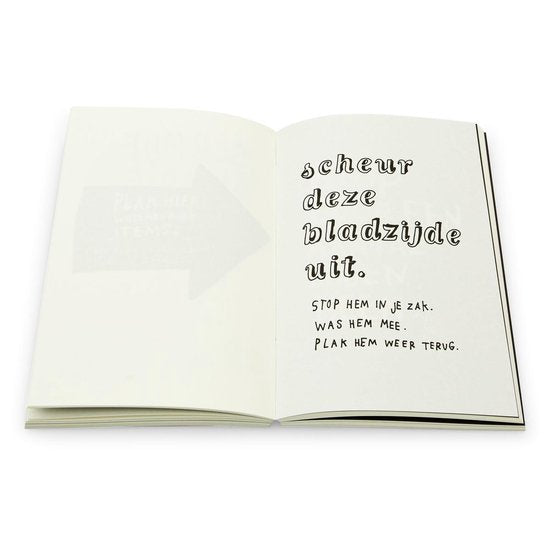 PLAK HIER
ITEMS.
scheur
deze
bladzijde
uit.
STOP HEM IN JE ZAK.
WAS HEM MEE.
PLAK HEM WEER TERUG.